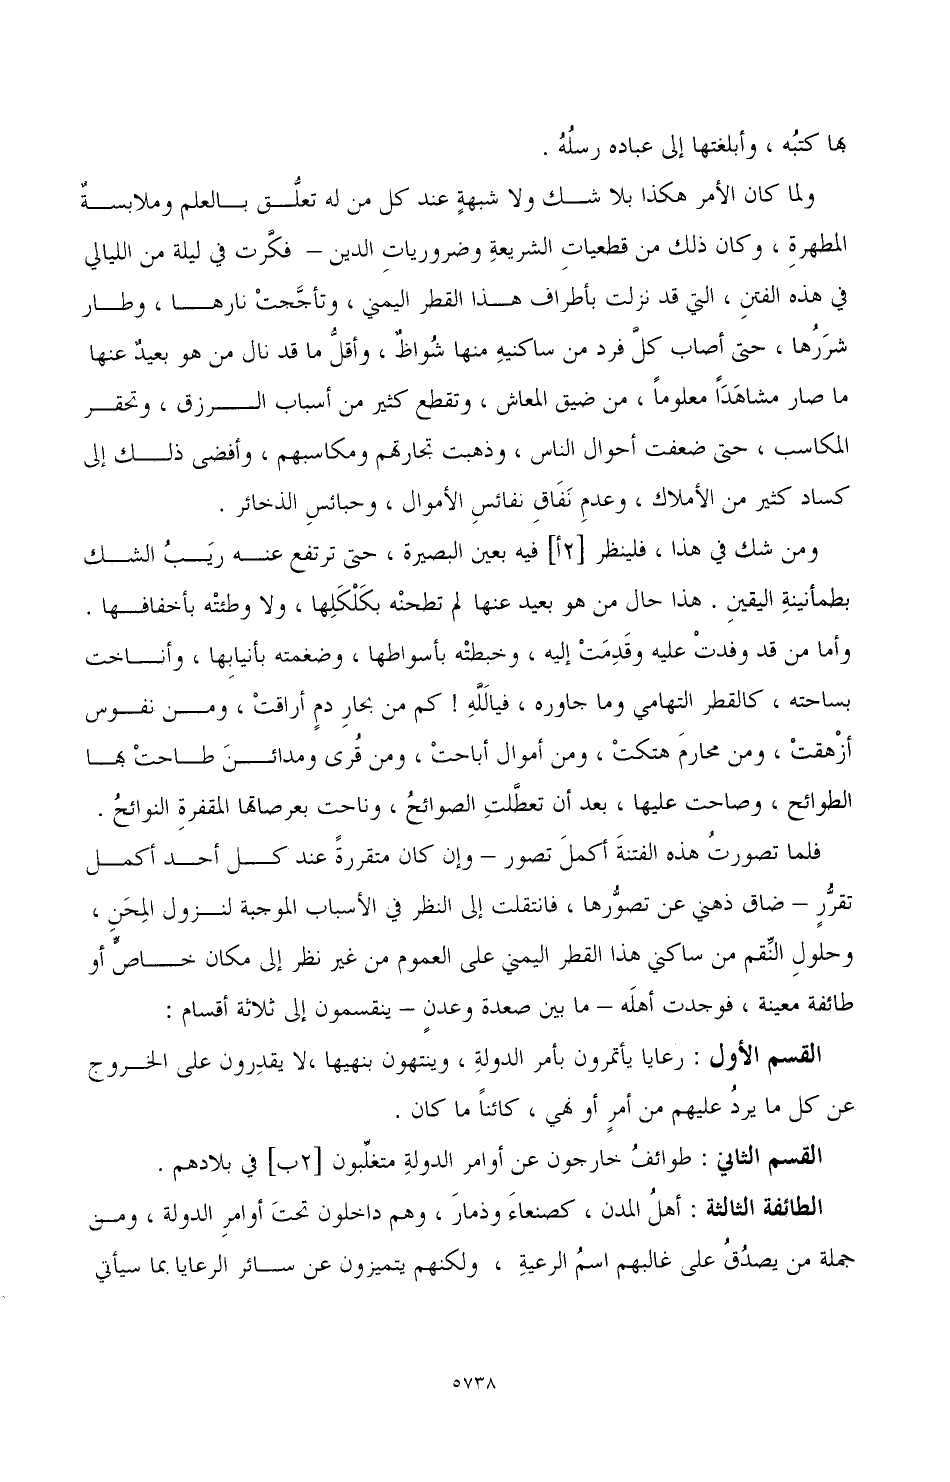 بها كتبُه ، وأبلغتها إلى عباده رسلُهُ .
ولما كان الأمر هكذا بلا شــك ولا شبهةٍ عند كل من له تعلُّــق بــالعلم وملابســةٌ
المطهرةِ ، وكان ذلك من قطعياتِ الشريعةِ وضرورياتِ الدين – فكَّرت في ليلة من الليالي
في هذه الفتنِ ، التي قد نزلت بأطراف هــذا القطر اليمني ، وتأجَّجتْ نارهــا ، وطــار
شررُها ، حتى أصاب كلَّ فرد من ساكنيهِ منها شُواظٌ ، وأقلُّ ما قد نال من هو بعيدٌ عنها
ما صار مشاهَدَاً معلوماً ، من ضيق المعاش ، وتقطع كثير من أسباب الــرزق ، وتحقــر
المكاسب ، حتى ضعفت أحوال الناس ، وذهبت تجارتهم ومكاسبهم ، وأفضى ذلــك إلى
كساد كثير من الأملاك ، وعدمِ نَفَاقِ نفائسِ الأموال ، وحبائسِ الذخائر .
ومن شك في هذا ، فلينظر [٢أ] فيه بعين البصيرة ، حتى ترتفع عنــه ريَبُ الشــك
بطمأنينةِ اليقينِ . هذا حال من هو بعيد عنها لم تطحنْه بكَلْكَلِها ، ولا وطئتْه بأخفافــها .
وأما من قد وفدتْ عليه وقَدِمَتْ إليه ، وخبطتْه بأسواطها ، وضغمته بأنيابِها ، وأنــاخت
بساحته ، كالقطر التهامي وما جاوره ، فياللَّهِ ! كم من بحارِ دمٍ أراقتْ ، ومــن نفــوس
أزْهقتْ ، ومن محارمَ هتكتْ ، ومن أموال أباحتْ ، ومن قُرى ومدائــنَ طــاحتْ بهــا
الطوائح ، وصاحت عليها ، بعد أن تعطَّلتِ الصوائحُ ، وناحت بعرصاتها المقفرةِ النوائحُ .
فلما تصورتُ هذه الفتنةَ أكملَ تصور – وإن كان متقررةً عند كــل أحــد أكمــل
تقرُّرٍ – ضاق ذهني عن تصوُّرها ، فانتقلت إلى النظر في الأسباب الموجبة لنــزول المِحَنِ ،
وحلولِ النِّقم من ساكني هذا القطر اليمني على العموم من غير نظر إلى مكان خــاصٍّ أو
طائفة معينة ، فوجدت أهلَه – ما بين صعدة وعدن – ينقسمون إلى ثلاثةِ أقسام :
القسم الأول : رعايا يأتمرون بأمر الدولةِ ، وينتهون بنهيها ،لا يقدِرون على الخــروج
عن كل ما يردُ عليهم من أمرٍ أو نهي ، كائناً ما كان .
القسم الثاني : طوائفُ خارجون عن أوامر الدولةِ متغلِّبون [٢ب] في بلادهم .
الطائفة الثالثة : أهلُ المدن ، كصنعاءَ وذمارَ ، وهم داخلون تحتَ أوامرِ الدولة ، ومــن
جملة من يصدُقُ على غالبهم اسمُ الرعيةِ ، ولكنهم يتميزون عن ســائر الرعايا بما سيأتي
٥٧٣٨